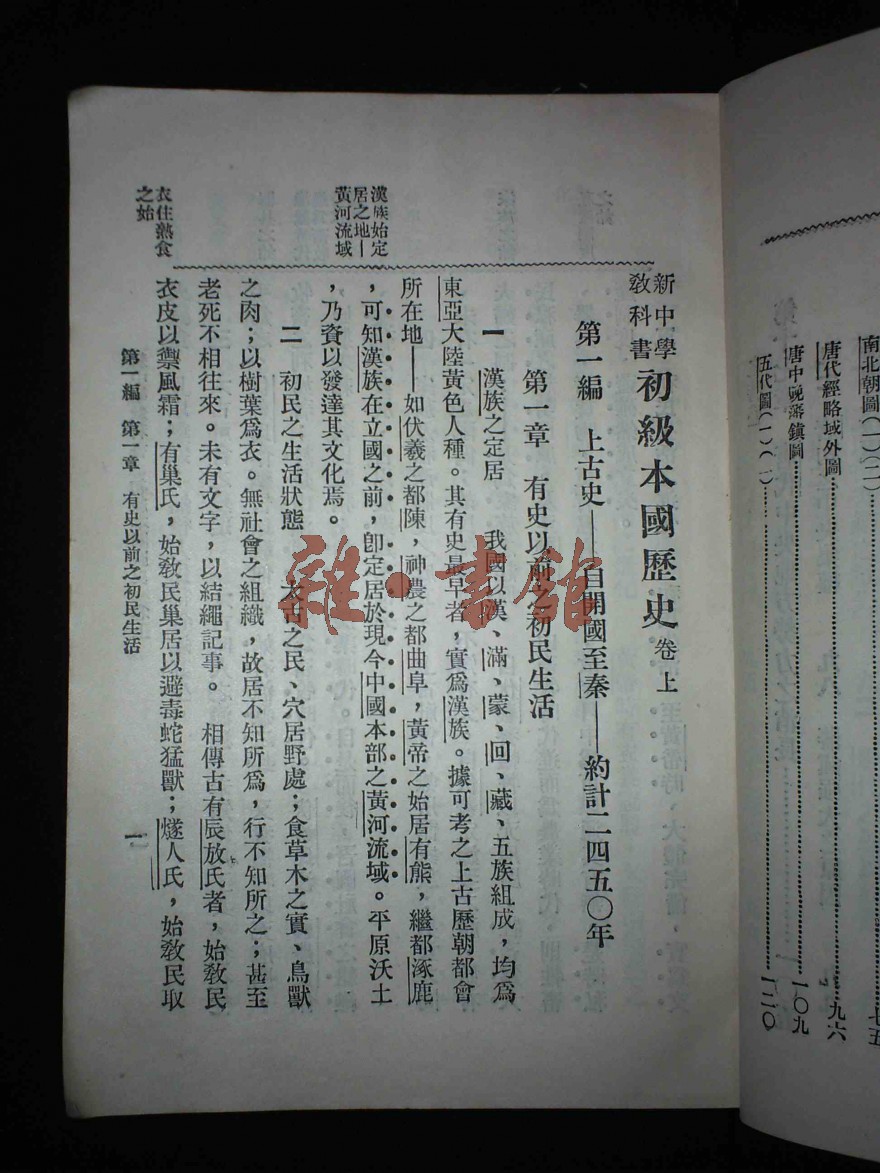 南北朝圖(一)(二)……七五
唐代經略域外圖……九六
唐中晚藩鎮圖……一〇九
五代圖(一)(二)……一二〇
新中學教科書初級本國歷史卷上
第一編 上古史——自開國至秦——約計二四五〇年
第一章 有史以前之初民生活
一 漢族之定居 我國以漢、滿、蒙、回、藏、五族組成,均爲
東亞大陸黃色人種。其有史最早者,實爲漢族。據可考之上古歷朝都會
所在地——如伏羲之都陳,神農之都曲阜,黃帝之始居有熊,繼都涿鹿
,可知漢族在立國之前,卽定居於現今中國本部之黃河流域。平原沃土
,乃資以發達其文化焉。
漢族始定居之地——黃河流域
二 初民之生活狀態 太古之民、穴居野處;食草木之實、鳥獸
之肉;以樹葉爲衣。無社會之組織,故居不知所爲,行不知所之;甚至
老死不相往來。未有文字,以結繩記事。 相傳古有辰放氏者,始敎民
衣皮以禦風霜;有巢氏,始敎民巢居以避毒蛇猛獸;燧人氏,始敎民取
衣住熱食之始
第一編 第一章 有史以前之初民生活
一
雜·書館